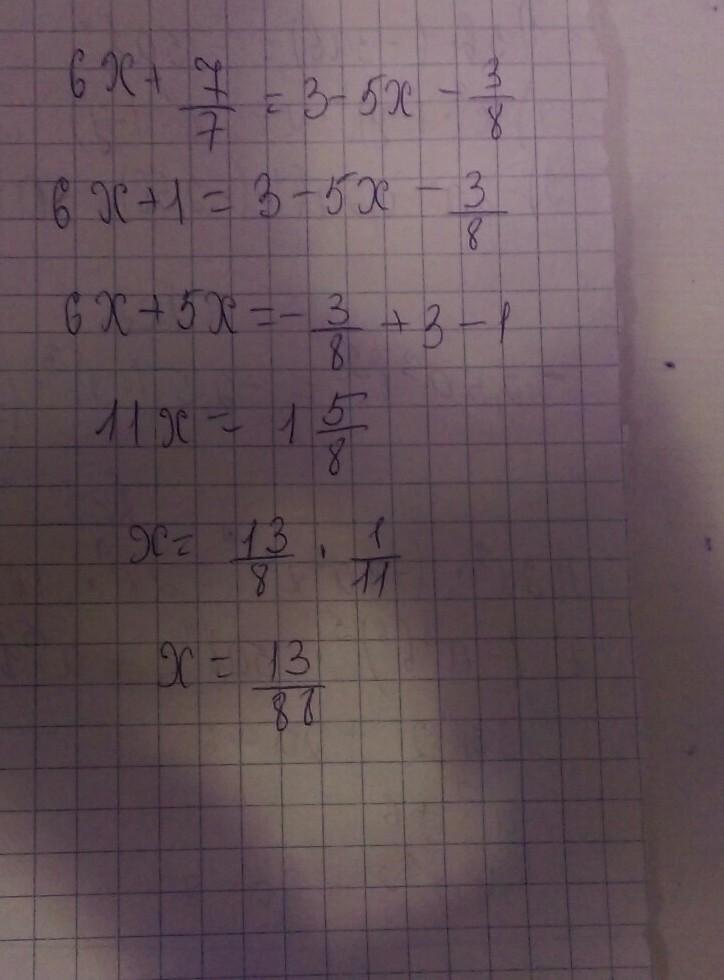 6x + 7/7 = 3 - 5x - 3/8
6x + 1 = 3 - 5x - 3/8
6x + 5x = - 3/8 + 3 - 1
11x = 1 5/8
x = 13/8 · 1/11
x = 13/88